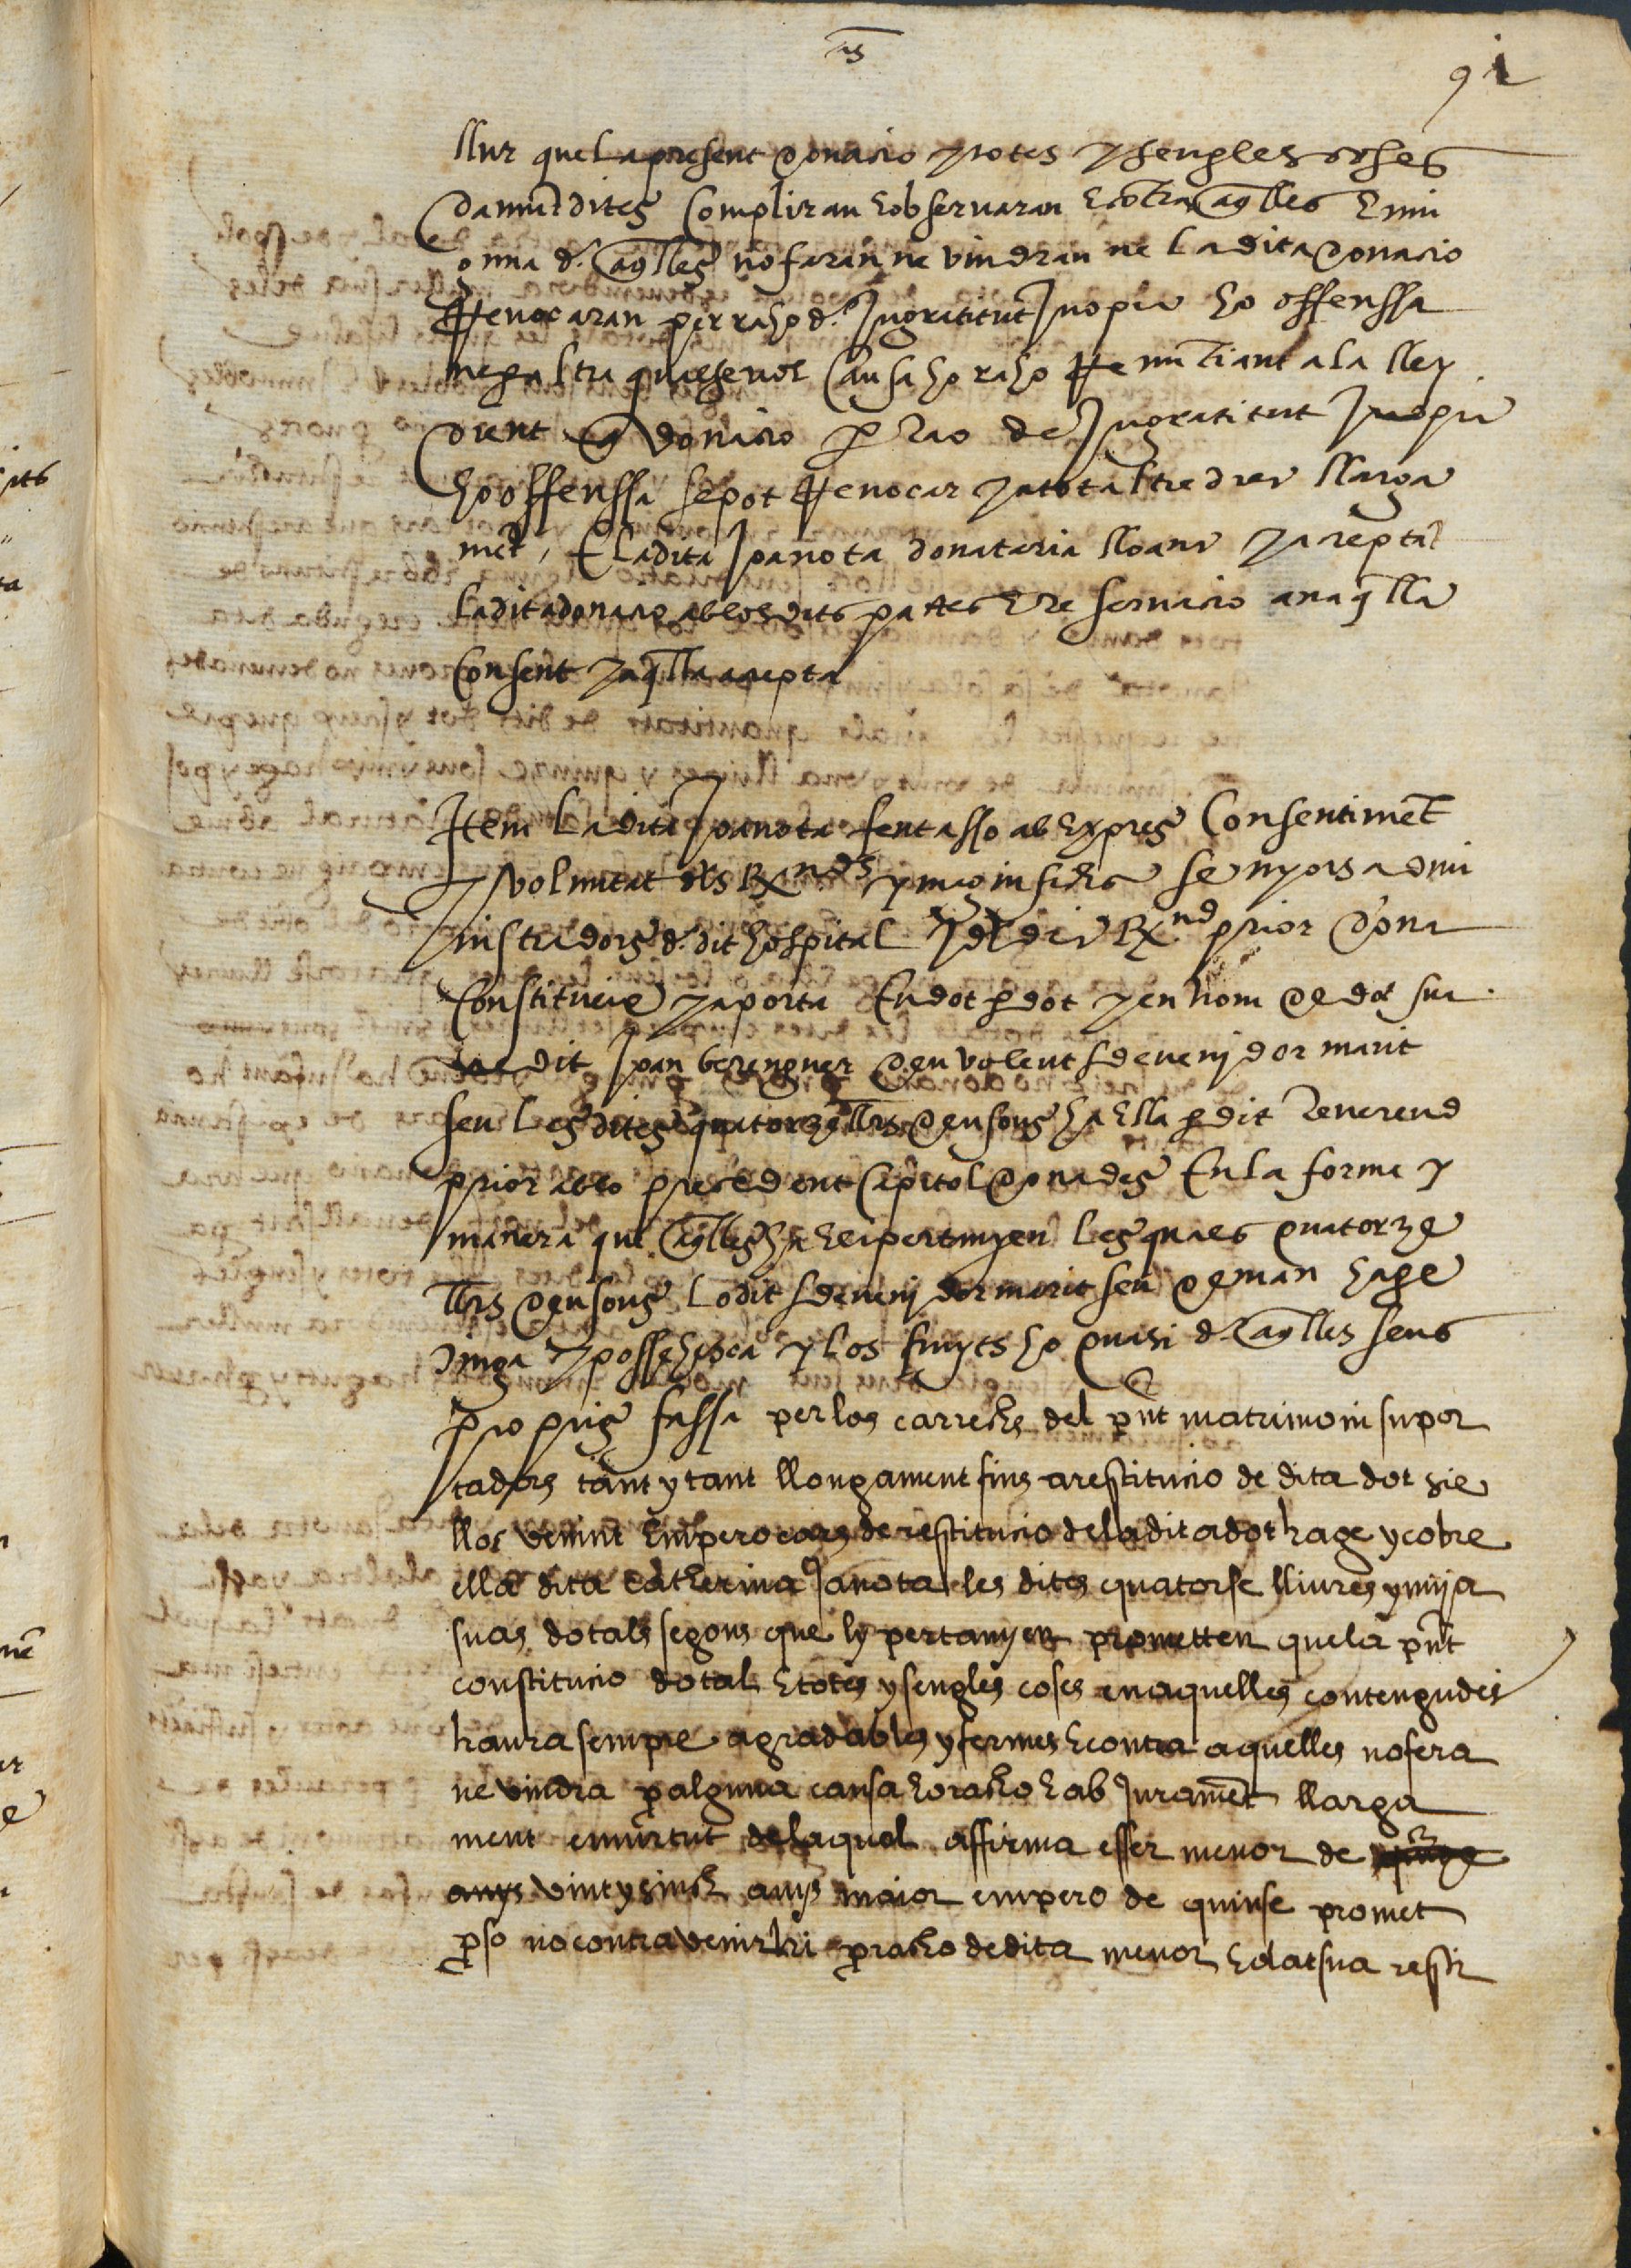 91
llur que la present donacio y totes y sengles coses
damūtdites compliran e observaran e cōtra aq̄lles e ni
guna d. aq̄lles no faran ne vindran ne la dita donacio
Revocaran per raho d. Ingratitut Inopia ho offenssa
ne p altra qualsevol causa ho raho Renūtiant a la lley
dient q̄ donacio p̱ rao de Ingratitut Inopia
ho offenssa se pot Revocar y a tot altre dret llarga
mēt, E la dita Joanota donataria lloant y aceptāt
la dita donacio ab los dits pactes e re servacio en aq̄lla
Consent y aq̄lla accepta
Item la dita Joanota fent asso ab expres Consentimēt
y voluntat dls Rx.nds y magnifichs senyors admi
nistradors d. dit hospital y dl dit Rx.nd prior dona
Constitueix y aporta En dot p̱ dot y en nom de dot sua
al dit Joan berenguer deu volent sdevenjdor marit
seu les dites quatorze llrs deu sous ha ella p̱ dit Reverend
prior ab lo precedent Capitol donades En la forma y
manera que aq̄lles ha ell pertanyen les quals quatorze
llrs deu sous lo dit sdevenjdor marit seu deman hage
tinga y possehesca y los fruyts ho quasi d. aq̄lles seus
propris fassa per los carrechs del pn̄t matrimoni supor
tadors tant y tant llongament fins a restitucio de dita dot sie
lloc venint Empero cars de restitucio de la dita dot hage y cobre
ella dita catherina Janota les dites quatorse lliures y mija
suas dotals segons que ly pertanyen prometten que la pn̄t
constitucio dotal E totes y sengles coses en aquelles contengudes
haura sempre agradables y fermes e contra aquelles no fera
ne vindra p̱ alguna causa ho racho e ab Juramēt llarga
ment en virtut de la qual affirma esser menor de
anys vint y sinch anys maior empero de quinse promet
p̱ so no contravenir hi p̱ racho de dita menor edat sua resti